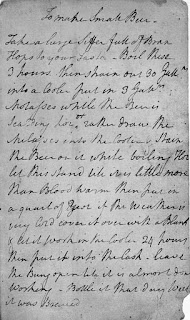 To make Small Beer
Take a large Siffer full of Bran
Hops to your Taste - Boil these
3 hours. then strain out 30 Gall.ns
into a Cooler put in 3 Gall.ns
Molasses while the Beer is
Scalding hot or rather draw the
Molasses into the Cooler & Strain
the Beer on it while boiling Hot
let this Stand till it is little more
than Blood warm then put in
a quart of Yest if the Weather is
very Cold cover it over with a Blanket
& let it work in the Cooler 24 hours
then put it into the Cask - leave
the Bung open till it is almost done
working - Bottle it that day Week
it was Brewed